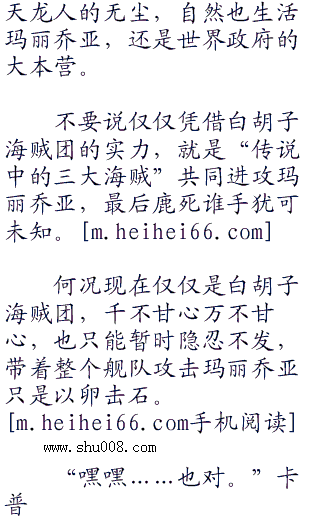 天龙人的无尘，自然也生活
玛丽乔亚，还是世界政府的
大本营。
不要说仅仅凭借白胡子
海贼团的实力，就是“传说
中的三大海贼”共同进攻玛
丽乔亚，最后鹿死谁手犹可
未知。[m.heihei66.com]
何况现在仅仅是白胡子
海贼团，千不甘心万不甘
心，也只能暂时隐忍不发，
带着整个舰队攻击玛丽乔亚
只是以卵击石。
[m.heihei66.com手机阅读]
www.shu008.com
“嘿嘿……也对。”卡
普